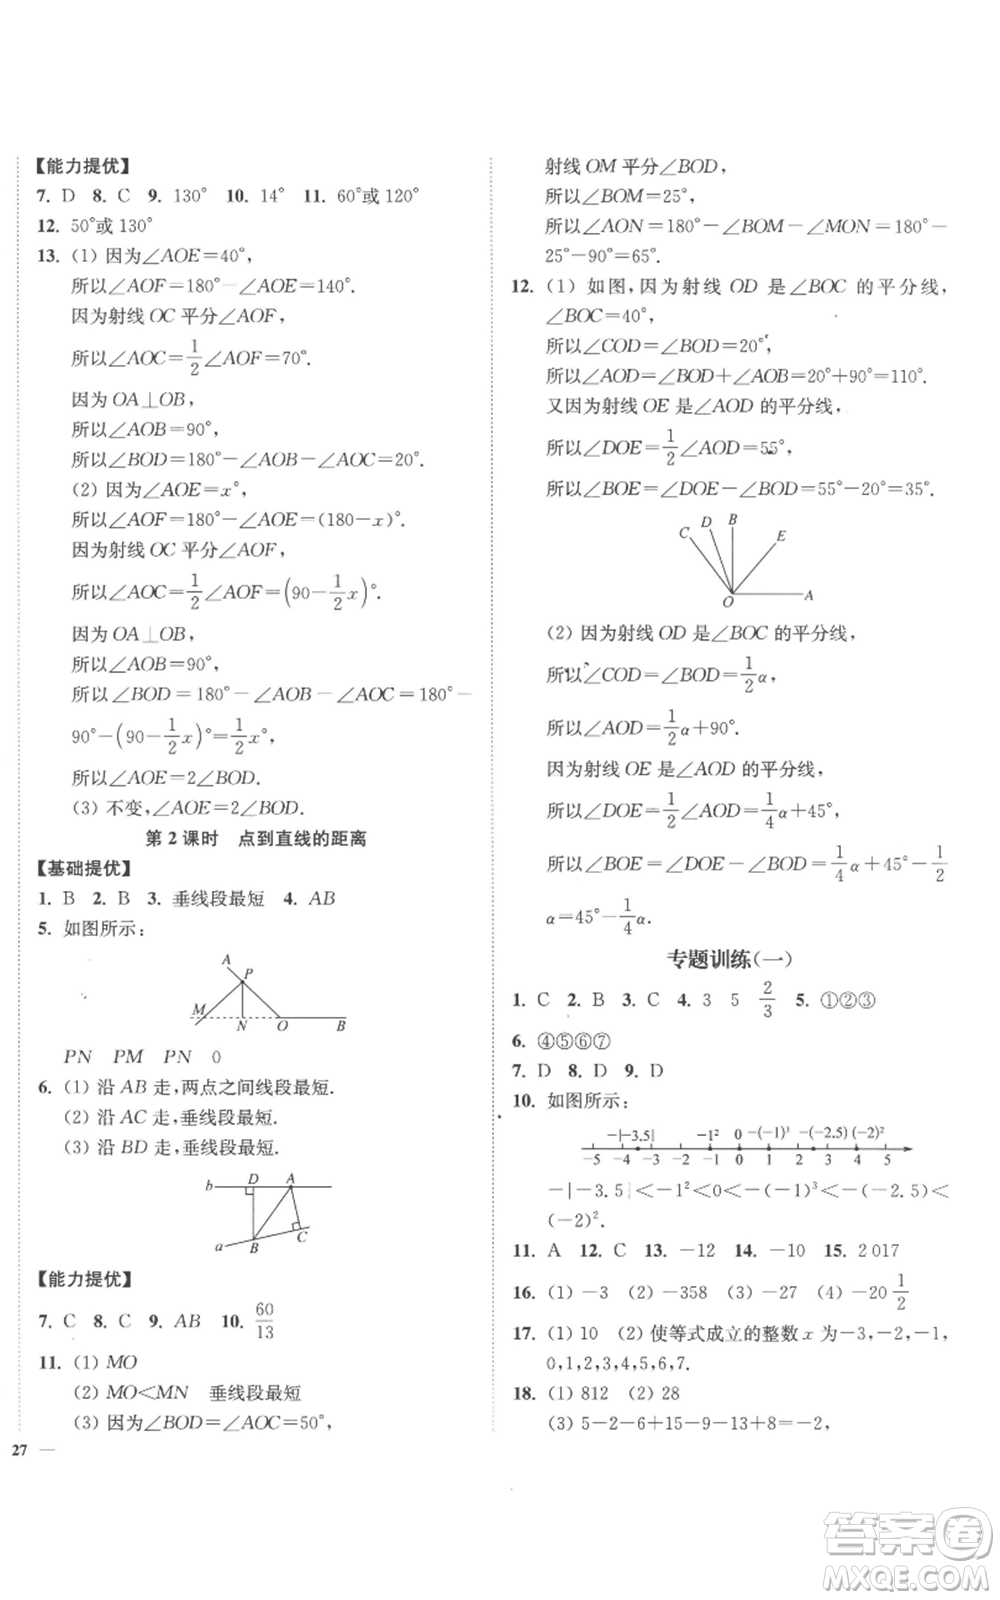 【能力提优】
7. D 8. C 9. 130° 10. 14° 11. 60°或 120°
12. 50°或 130°
13. (1) 因为∠AOE=40°,
所以∠AOF=180°-∠AOE=140°.
因为射线 OC 平分∠AOF,
所以∠AOC=1/2∠AOF=70°.
因为 OA⊥OB,
所以∠AOB=90°,
所以∠BOD=180°-∠AOB-∠AOC=20°.
(2) 因为∠AOE=x°,
所以∠AOF=180°-∠AOE=(180-x)°.
因为射线 OC 平分∠AOF,
所以∠AOC=1/2∠AOF=(90-1/2x)°.
因为 OA⊥OB,
所以∠AOB=90°,
所以∠BOD=180°-∠AOB-∠AOC=180°-
90°-(90-1/2x)°=1/2x°,
所以∠AOE=2∠BOD.
(3) 不变,∠AOE=2∠BOD.
第 2 课时 点到直线的距离
【基础提优】
1. B 2. B 3. 垂线段最短 4. AB
5. 如图所示:
A P
M N O B
PN PM PN 0
6. (1) 沿 AB 走,两点之间线段最短.
(2) 沿 AC 走,垂线段最短.
(3) 沿 BD 走,垂线段最短.
b D A
a B C
【能力提优】
7. C 8. C 9. AB 10. 60/13
11. (1) MO
(2) MO<MN 垂线段最短
(3) 因为∠BOD=∠AOC=50°,
27 —
射线 OM 平分∠BOD,
所以∠BOM=25°,
所以∠AON=180°-∠BOM-∠MON=180°-
25°-90°=65°.
12. (1) 如图,因为射线 OD 是∠BOC 的平分线,
∠BOC=40°,
所以∠COD=∠BOD=20°,
所以∠AOD=∠BOD+∠AOB=20°+90°=110°.
又因为射线 OE 是∠AOD 的平分线,
所以∠DOE=1/2∠AOD=55°,
所以∠BOE=∠DOE-∠BOD=55°-20°=35°.
C D B E
O A
(2) 因为射线 OD 是∠BOC 的平分线,
所以∠COD=∠BOD=1/2α,
所以∠AOD=1/2α+90°.
因为射线 OE 是∠AOD 的平分线,
所以∠DOE=1/2∠AOD=1/4α+45°,
所以∠BOE=∠DOE-∠BOD=1/4α+45°-1/2
α=45°-1/4α.
专题训练(一)
1. C 2. B 3. C 4. 3 5 2/3 5. ①②③
6. ④⑤⑥⑦
7. D 8. D 9. D
10. 如图所示:
-|-3.5| -1² 0 -(-1)³ -(-2.5) (-2)²
-5 -4 -3 -2 -1 0 1 2 3 4 5
-|-3.5|<-1²<0<-(-1)³<-(-2.5)<
(-2)².
11. A 12. C 13. -12 14. -10 15. 2 017
16. (1) -3 (2) -358 (3) -27 (4) -20 1/2
17. (1) 10 (2) 使等式成立的整数 x 为-3,-2,-1,
0,1,2,3,4,5,6,7.
18. (1) 812 (2) 28
(3) 5-2-6+15-9-13+8=-2,
答案卷
MXQE.COM